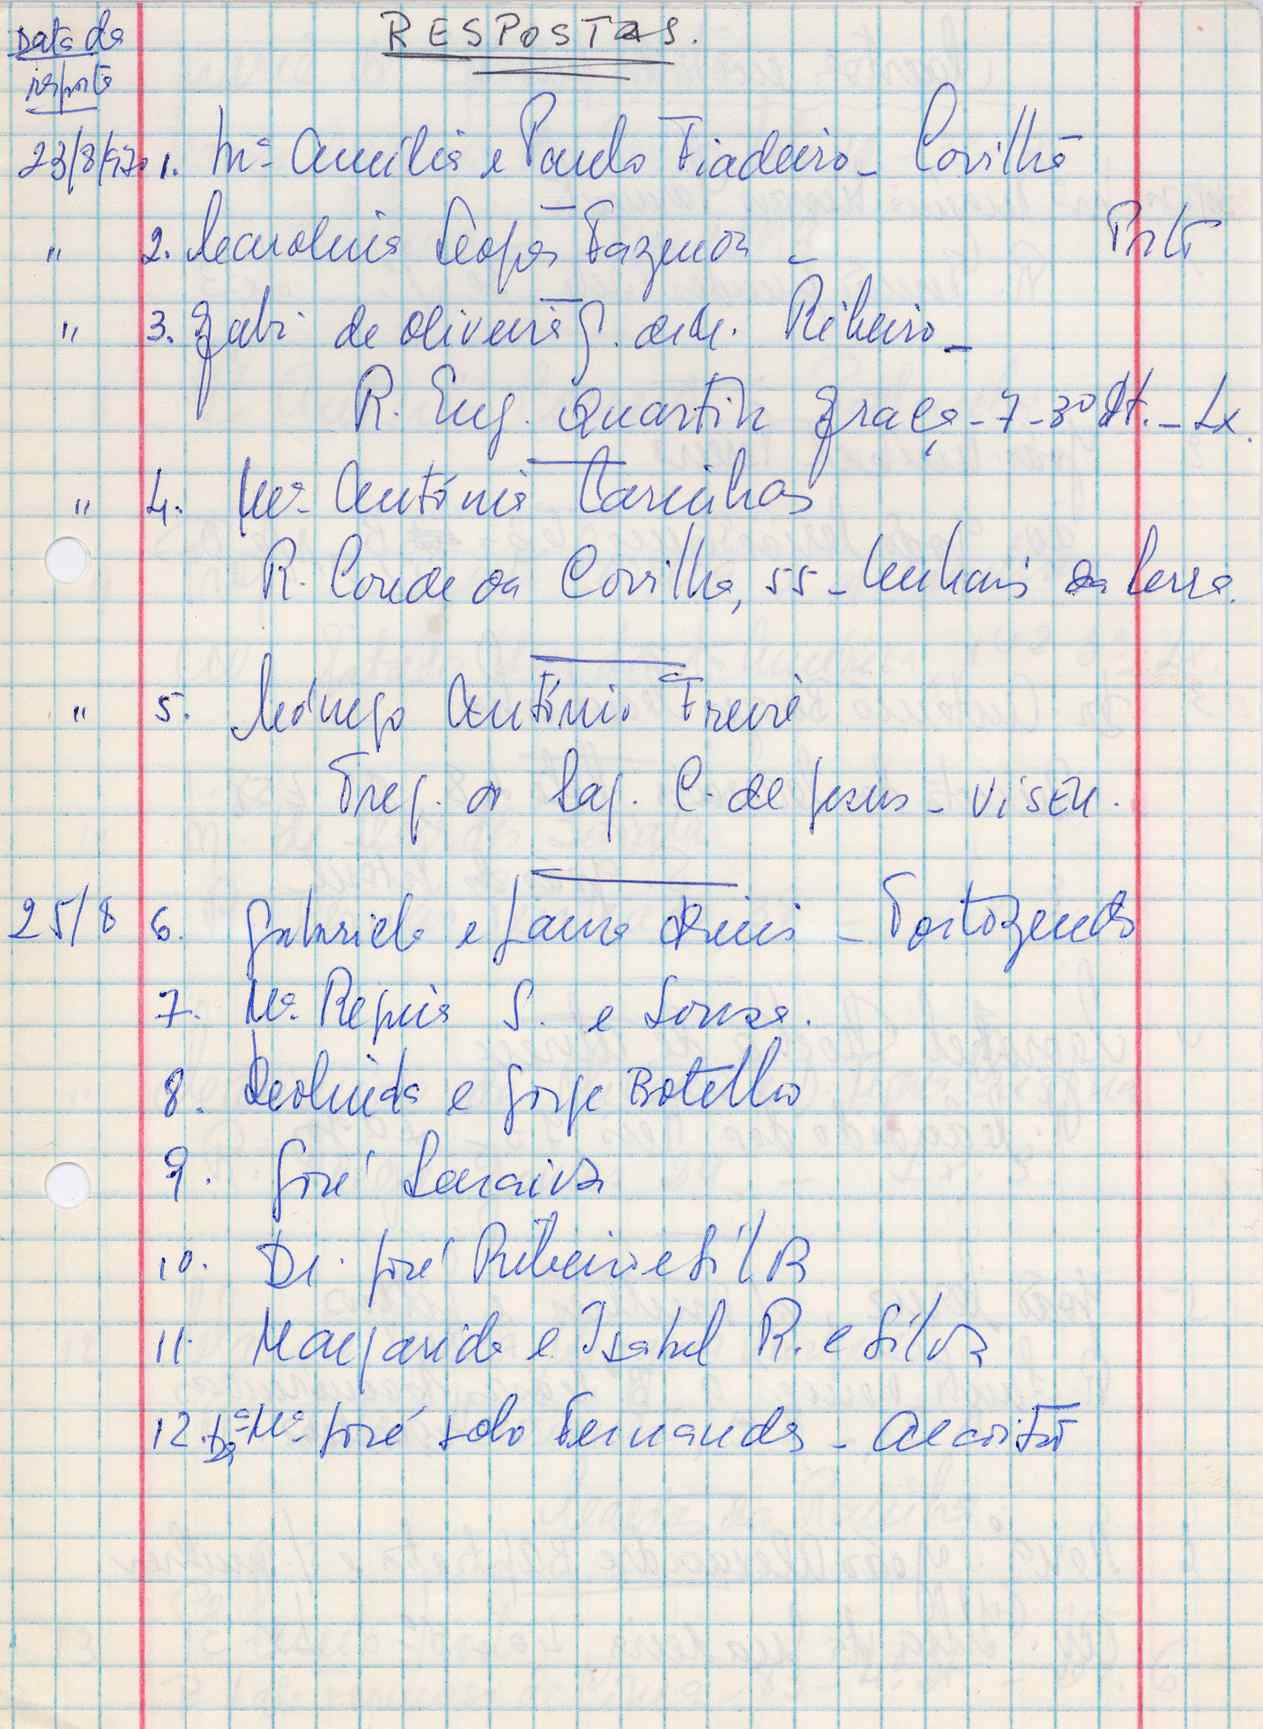 Data da
resposta
RESPOSTAS.
23/8/97 1. Mª Amélia e Paulo Fiadeiro - Covilhã
" 2. Leopos Fazenda -
" 3. Gabi de Oliveira G. Ribeiro -
R. Eng. Quartin Graça - 7 - 3º Dt. - Lx.
" 4. Mª António Carinhas
R. Conde da Covilhã, 55 - Penhas da Serra.
" 5. Cónego António Freire
Freg. do Sag. C. de Jesus - Viseu.
25/8 6. Gabriela e Laura Dinis - Tortozendo
7. Mª Regina S. e Sousa.
8. Deolinda e Jorge Botelho
9. José Saraiva
10. Dr. José Ribeiro e Silva
11. Margarida e Isabel R. e Silva
12. Drª Mª José Lobo Fernandes - Alcoitão